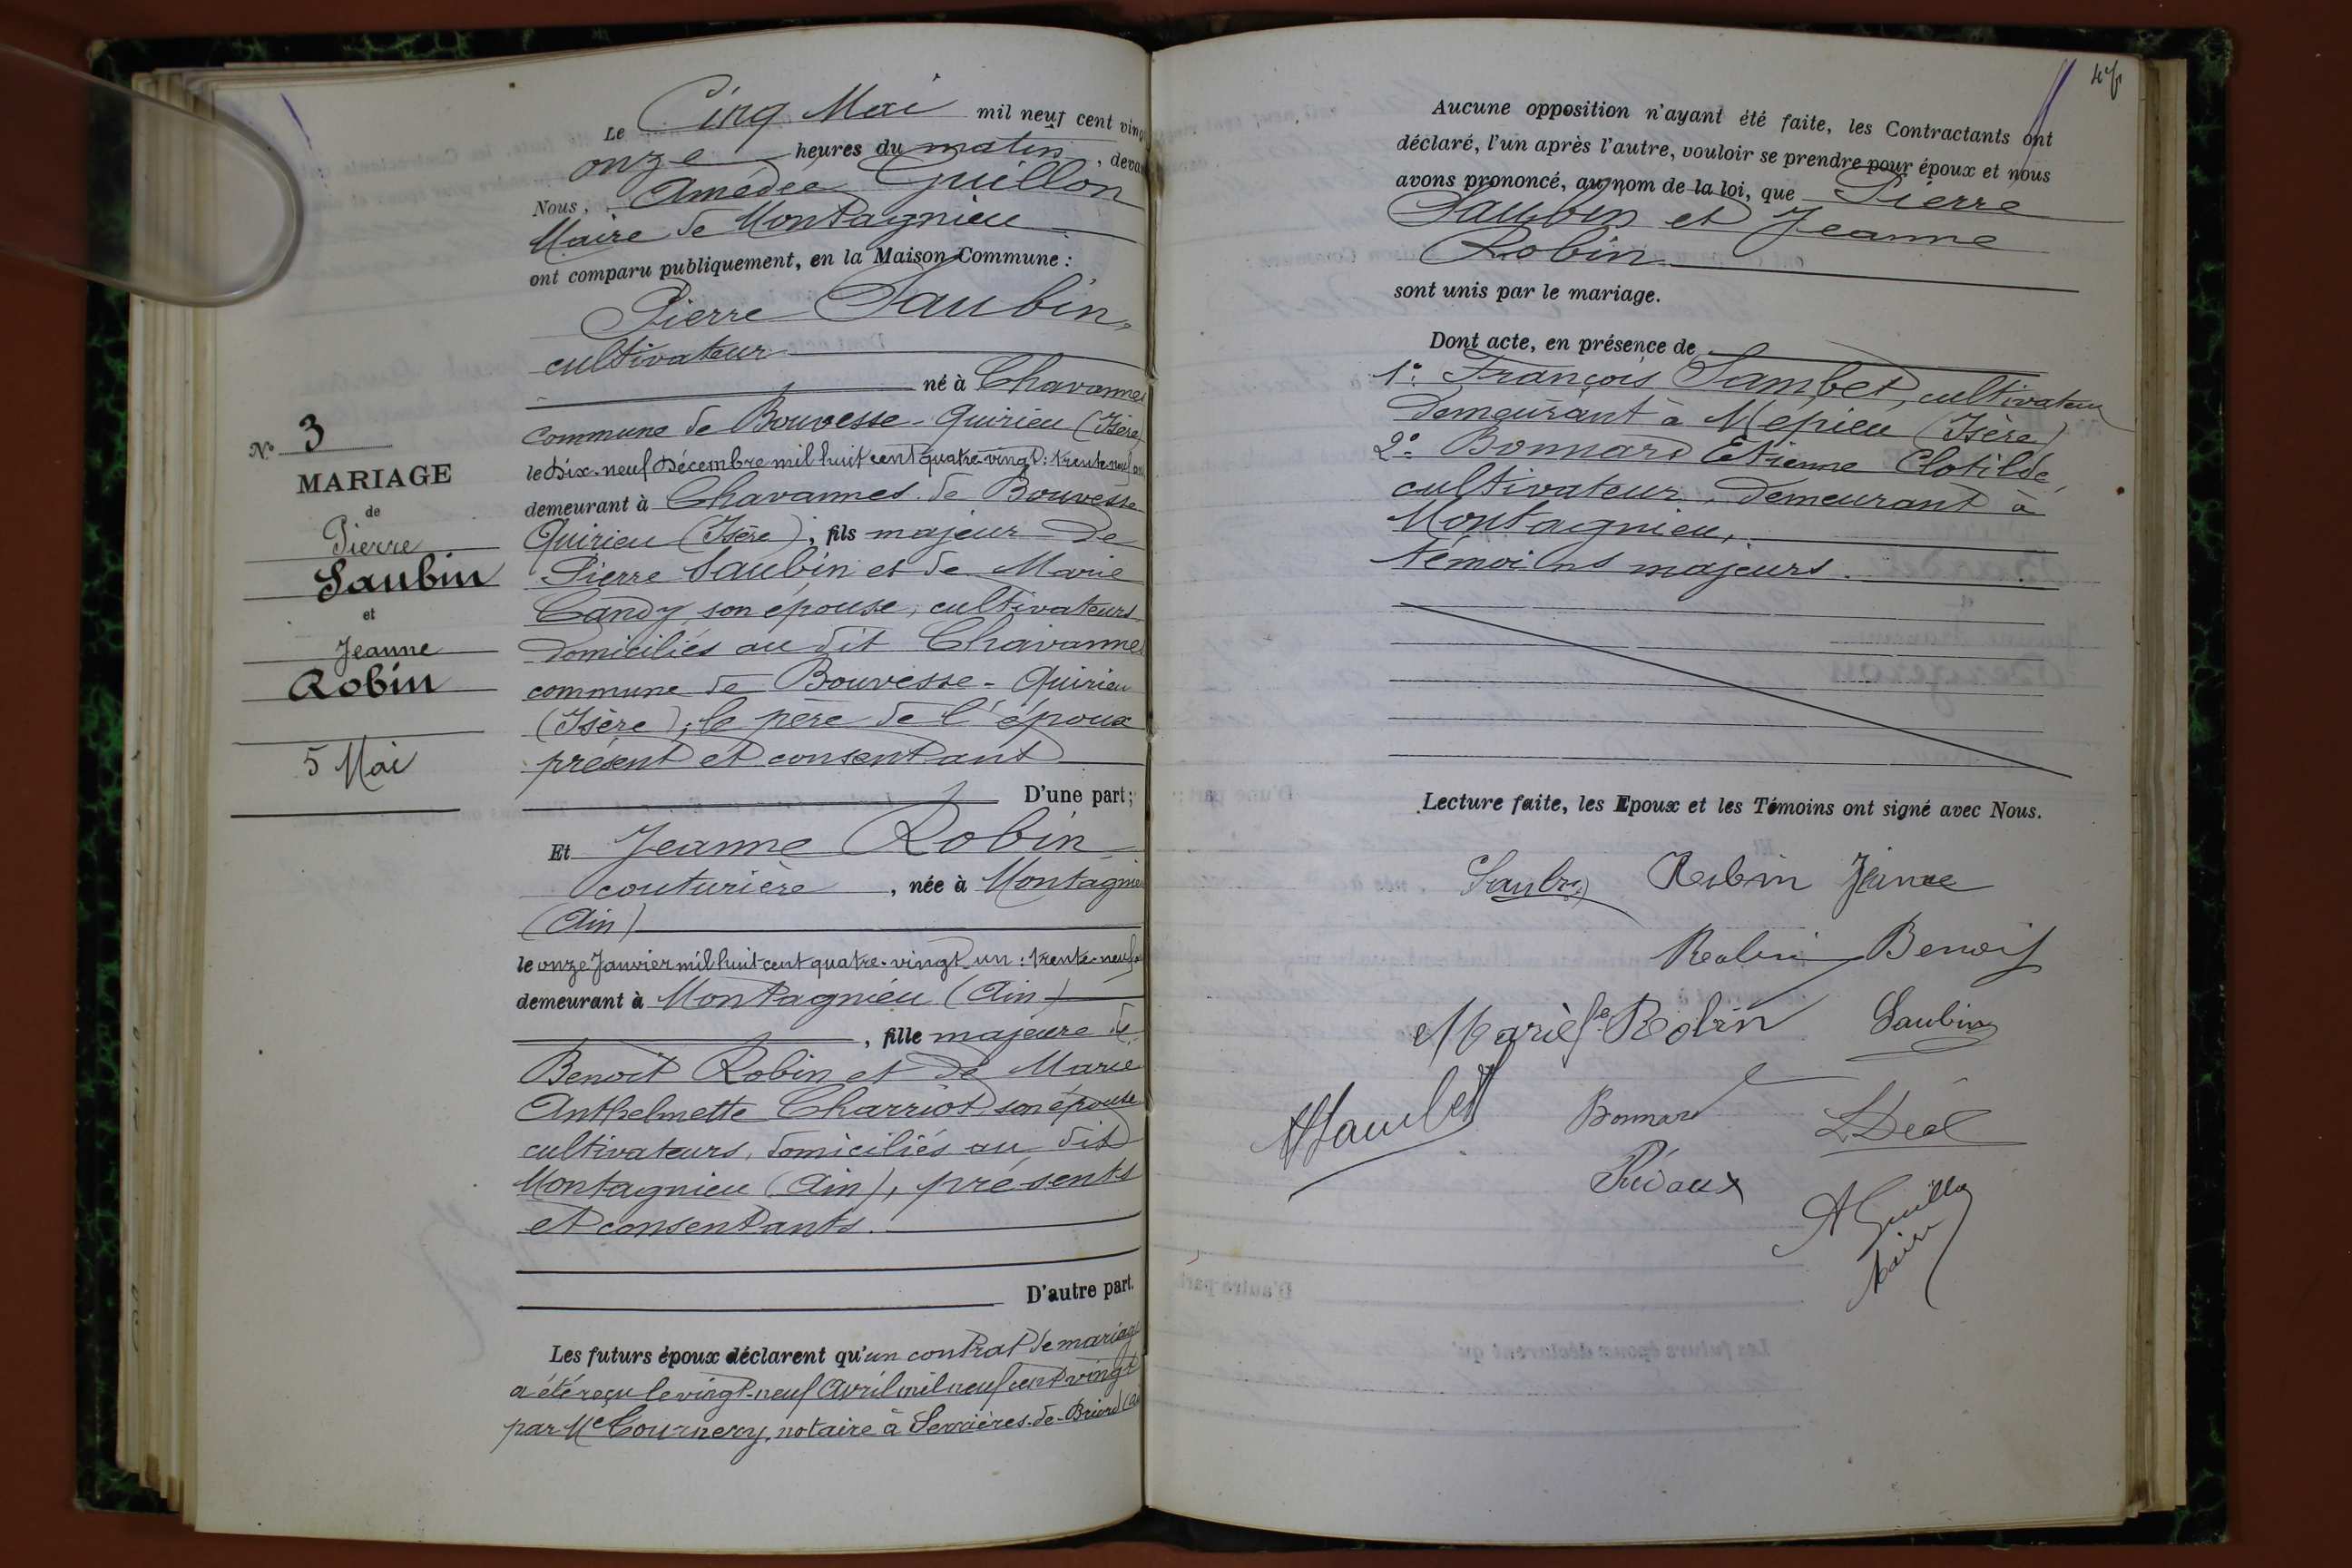 Le Cinq Mai mil neuf cent ving
onze heures du matin, deva
Nous, Amédée Guillon
Maire de Montagnieu
ont comparu publiquement, en la Maison Commune :
Pierre Saubin,
cultivateur
né à Chavannes
commune de Bouvesse-Quirieu (Isère)
le Dix-neuf Décembre mil huit cent quatre-vingt : trente neuf ans
demeurant à Chavannes de Bouvesse
Quirieu (Isère), fils majeur de
Pierre Saubin et de Marie
Candy son épouse, cultivateurs
domiciliés au dit Chavannes
commune de Bouvesse-Quirieu
(Isère); le père de l'époux
présent et consentant
D'une part;
N° 3
MARIAGE
de
Pierre
Saubin
et
Jeanne
Robin
5 Mai
Et Jeanne Robin
couturière, née à Montagnieu
(Ain)
le onze Janvier mil huit cent quatre-vingt-un : trente-neuf a
demeurant à Montagnieu (Ain)
, fille majeure de
Benoit Robin et de Marie
Anthelmette Charriot son épouse
cultivateurs, domiciliés au dit
Montagnieu (Ain), présents
et consentants.
D'autre part.
Les futurs époux déclarent qu'un contrat de mariage
a été reçu le vingt-neuf Avril mil neuf cent vingt
par Me Cournery, notaire à Serrières-de-Briord (Ai
Aucune opposition n'ayant été faite, les Contractants ont
déclaré, l'un après l'autre, vouloir se prendre pour époux et nous
avons prononcé, au nom de la loi, que Pierre
Saubin et Jeanne
Robin
sont unis par le mariage.
Dont acte, en présence de
1°: François Sambet, cultivateur
demeurant à Mépieu (Isère)
2°: Bonnard Etienne Clotilde,
cultivateur, demeurant à
Montagnieu,
témoins majeurs.
Lecture faite, les Epoux et les Témoins ont signé avec Nous.
Saubin Robin Jeanne
Robin Benoit
Robin Saubin
Sambet Bonnard
A Guillon
Maire